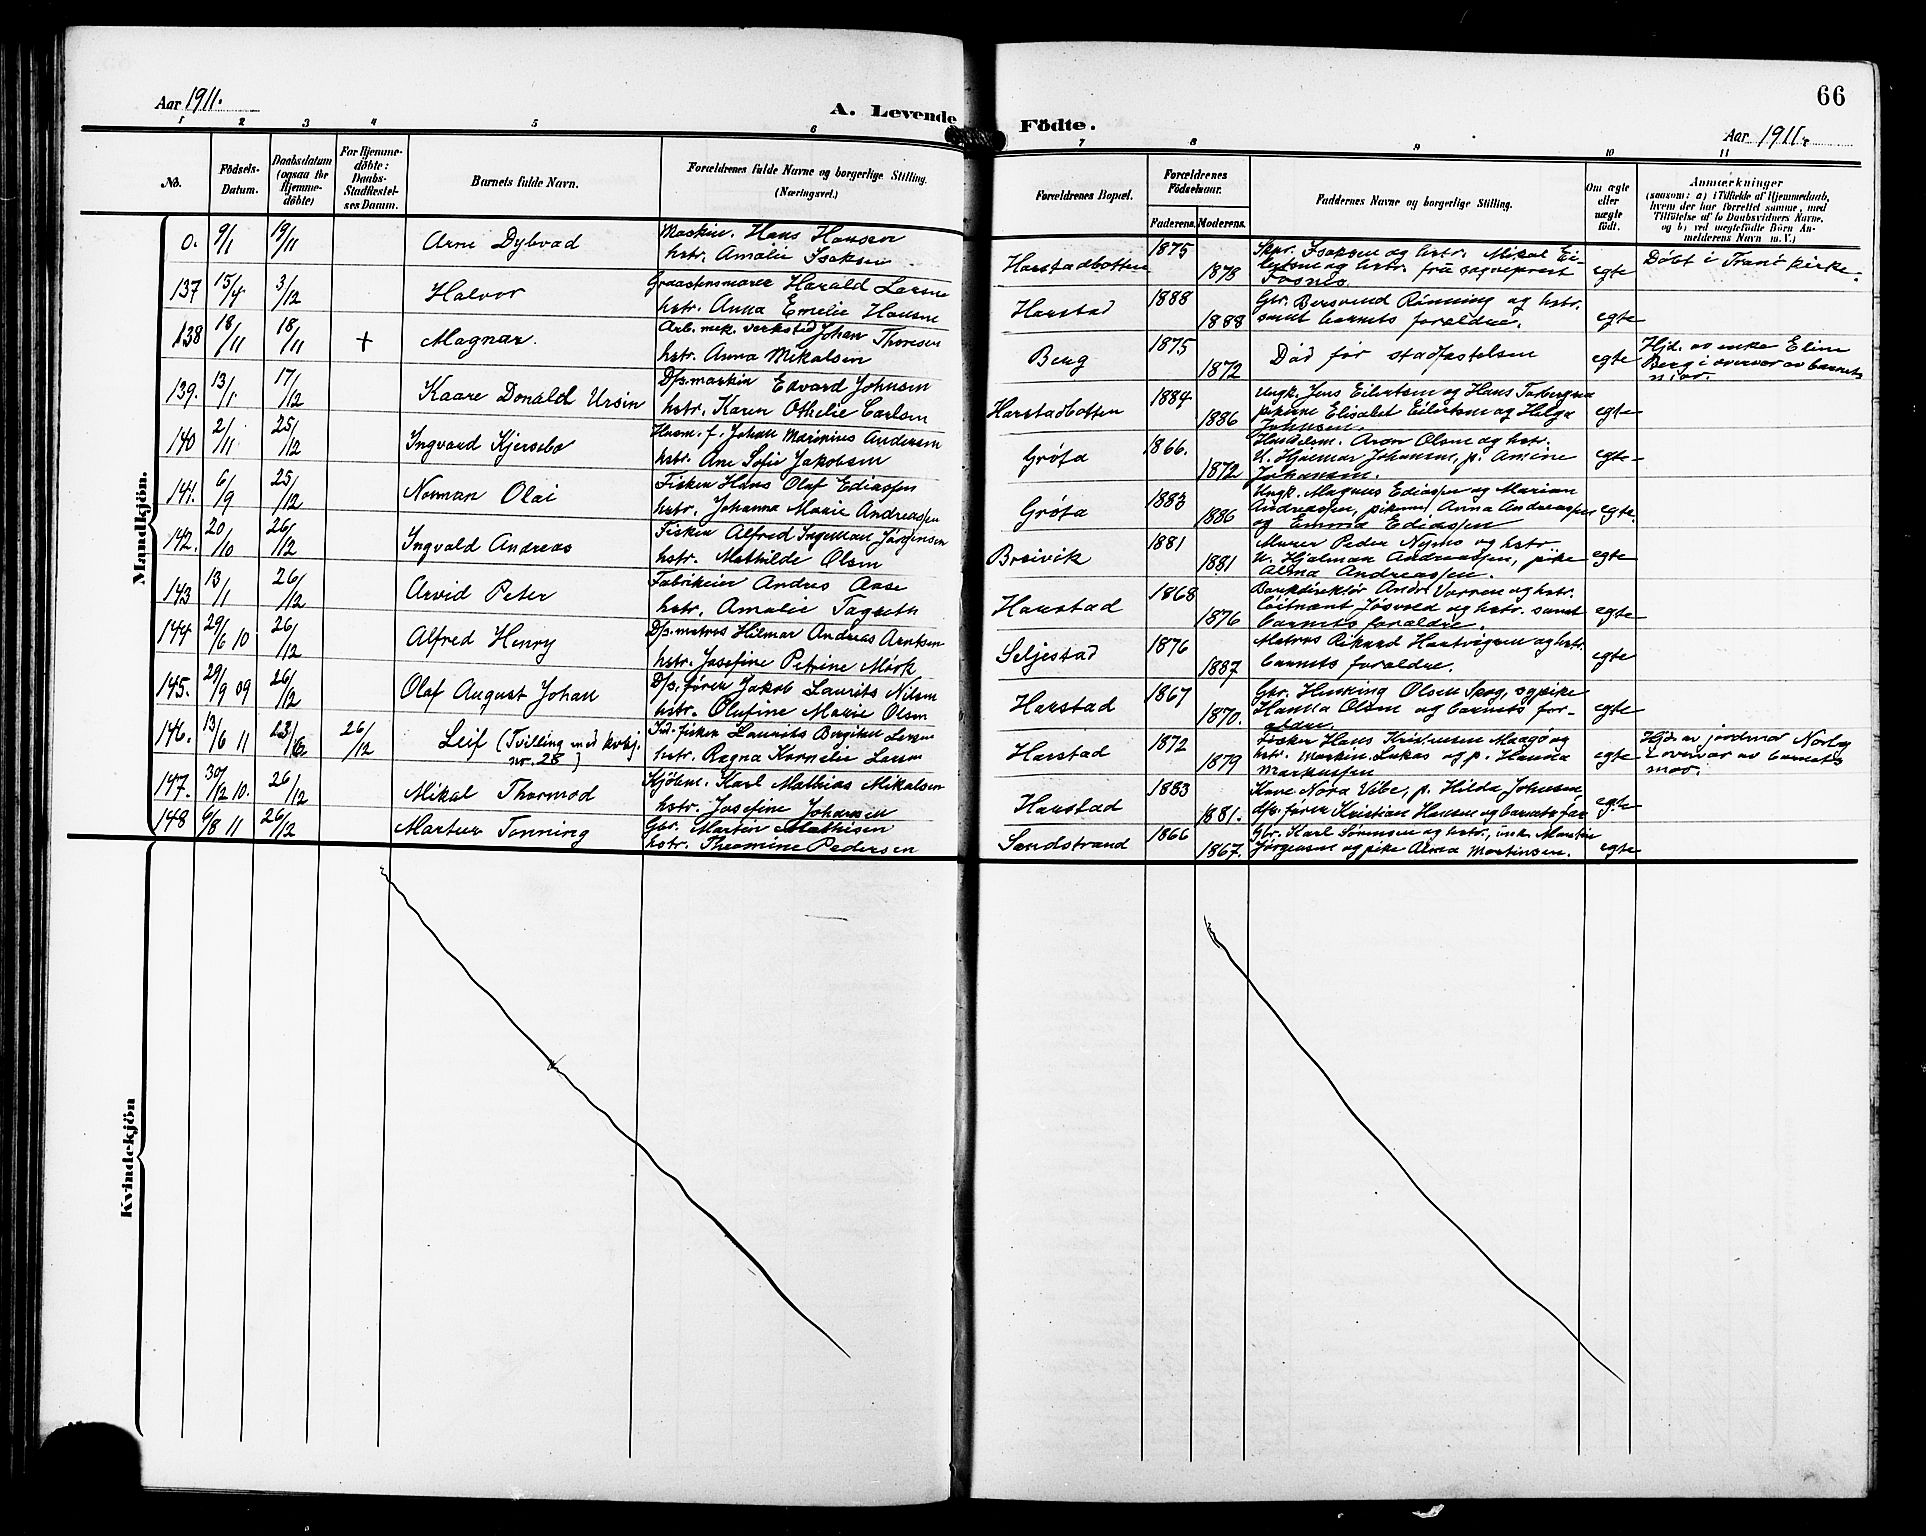 Aar 1911.
A. Levende
1 2 3 4 5 6
No.
Födsels-
Datum.
Daabsdatum
(ogsaa for
Hjemme-
döbte)
For Hjemme-
döbte:
Daabs-
Stadfæstel-
ses Datum.
Barnets fulde Navn.
Forældrenes fulde Navne og borgerlige Stilling.
(Næringsvei.)
Mandkjön.
0. 9/1 19/11 Arne Dybvad
Maskin. Hans Hansen
hstr. Amalie Isaksen
137 15/4 3/12 Halvor
Graastensmurer Harald Larsen
hstr. Anna Emelie Hansen
138 18/11 18/11 + Magnar.
Arb. mek. verksted Johan Thoresen
hstr. Anna Mikalsen
139. 13/1 17/12 Kaare Donald Ursin
D/s. maskin Edvard Johnsen
hstr. Karen Othelie Carlsen
140 2/11 25/12 Ingvard Kjersebo
Husm. f. Johan Marinius Andersen
hstr. Ane Sofie Jakobsen
141. 6/9 25/12 Norman Olai
Fisker Hans Olaf Ediassen
hstr. Johanna Marie Andreassen
142. 20/10 26/12 Ingvald Andreas
Fisker Alfred Ingeman Jørgensen
hstr. Mathilde Olsen
143 13/1 26/12 Arvid Peter
Fabrikeier Andres Aase
hstr. Amalie Tagseth
144 29/6 10 26/12 Alfred Henry
D/s. matros Hilmar Andreas Arntsen
hstr. Josefine Petrine Mörk
145. 29/9 09 26/12 Olaf August Johan
D/s. fører Jakob Laurits Nilsen
hstr. Olufine Marie Olsen
146. 13/6 11 23/6 26/12 Leif (Tvilling med kvkj.
nr. 28)
Fisker Laurits Bergiton Larsen
hstr. Ragna Kornelie Larsen
147. 30/12 10. 26/12 Mikal Thormod
Sjöhm. Karl Mathias Mikalsen
hstr. Josefine Johansen
148 6/8 11 26/12 Martin Tønning
Gbr. Martin Mathisen
hstr. Theomine Pedersen
Kvindekjön
66
Födte.
Aar 1911.
7 8 9 10 11
Forældrenes Bopæl.
Forældrenes
Födselsaar.
Faderens. Moderens.
Faddernes Navne og borgerlige Stilling.
Om ægte
eller
uægte
födt.
Anmærkninger
(saasom: a) i Tilfælde af Hjemmedaab,
hvem der har forrettet samme, med
Tilföielse af to Daabsvidners Navne,
og b) ved uægtefödte Börn An-
melderens Navn m. V.)
Harstadbotten 1875 1878
Skpr. Isaksen og hstr. Mikal Ei-
lertsen og hstr. fru sogneprest
Fosnes
egte
Döbt i Tranö kirke.
Harstad 1888 1888
Gbr. Bersvend Rönning og hstr.
samt barnets foraldre.
egte
Berg 1875 1872
Död för stadfæstelsen
egte
Hjd. av enke Eline
Berg i overvær av barnets
mor.
Harstadbotten 1884 1886
Ungk. Jens Eilertsen og Hans Torbergsen
pikerne Elisabet Eilertsen og Helga
Johnsen.
egte
Gröta 1866. 1872
Handelsm. Aron Olsen og hstr.
U. Hjalmar Johansen, p. Amine
Johansen.
egte
Gröta 1883 1886
Ungk. Magnus Ediassen og Marian
Andreassen, pikerne Anna Andreassen
og Emma Ediassen
egte.
Breivik 1881 1881
Murer Peder Nymo og hstr.
U. Hjalmar Andreassen, pike
Alma Andreassen.
egte
Harstad 1868 1876
Bankdirektör Andr. Varren og hstr.
Löitnant Jösvold og hstr. samt
barnets foraldre.
egte
Seljestad 1876 1887
Matros Rikard Hartvigsen og hstr.
barnets foraldre.
egte
Harstad 1867 1870.
Gbr. Henning Olsen Spog, og pike
Hanna Olsen og barnets for-
aldre.
egte
Harstad 1872 1879
Fisker Hans Kristensen Maagö og
hstr. Martin Lukas og p. Hanna
Markussen
egte
Hjd. av jordmor Norby
i overvær av barnets
mor.
Harstad 1883 1881.
Kone Nora Vibe, p. Hilda Johnsen,
d/s. fører Kristian Hansen og barnets far
egte
Sandstrand 1866 1867.
Gbr. Karl Sörensen og hstr., enkr. Martin
Jörgensen og pike Alma Martinsen.
egte